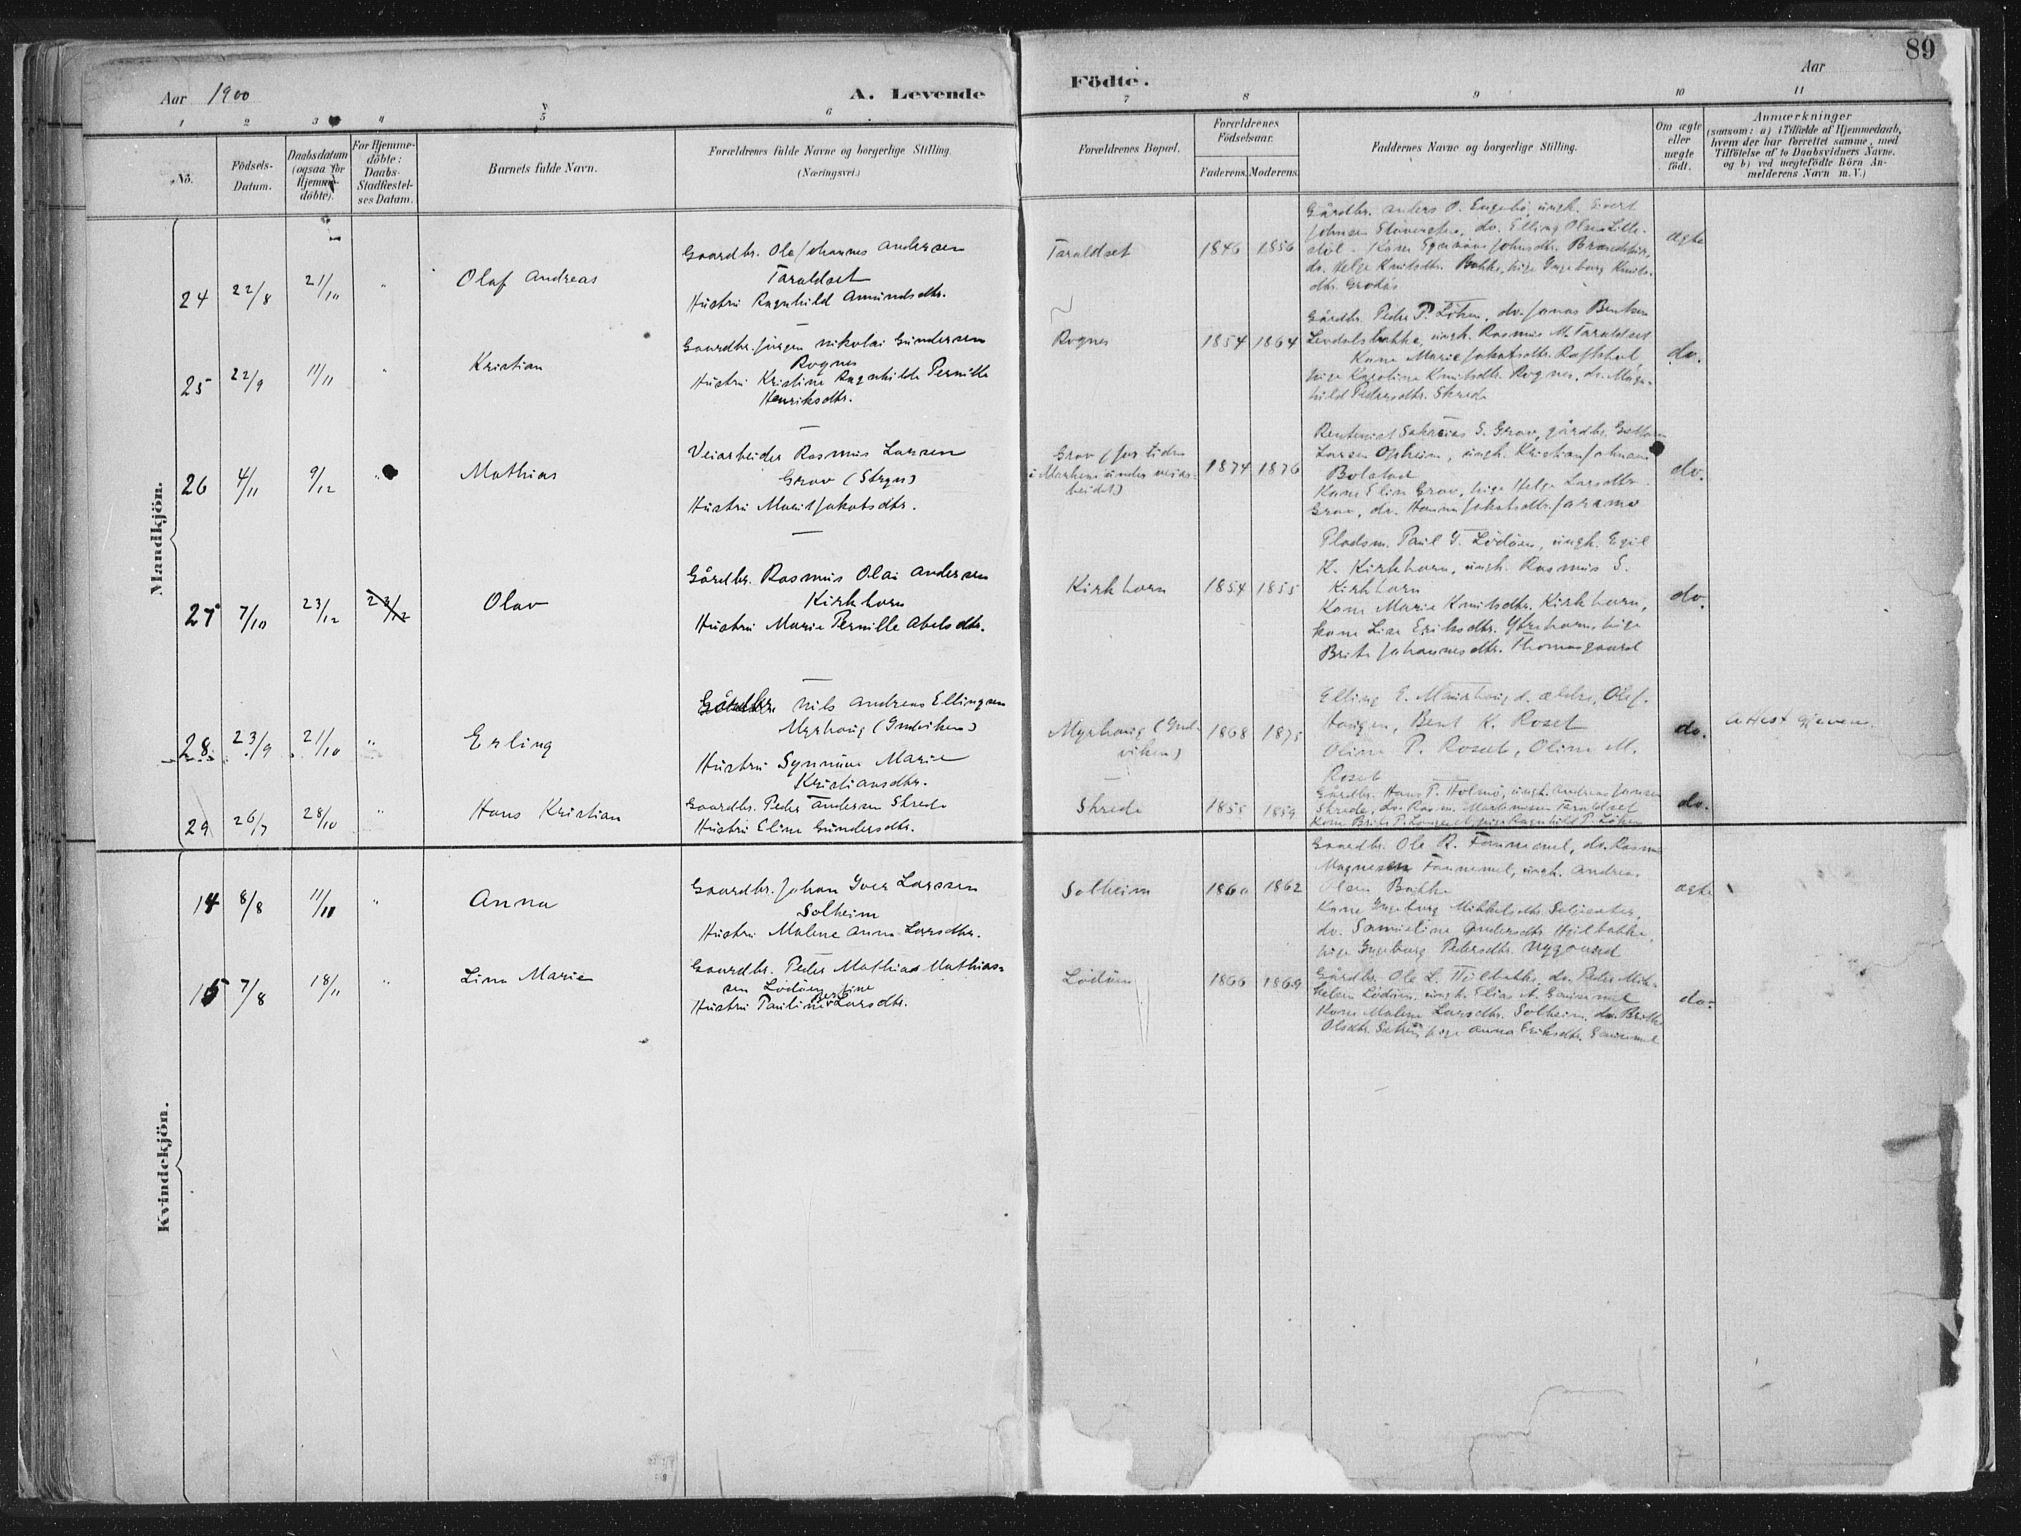 89
Aar 1900
A. Levende
Födte.
Aar
1 2 3 4 5 6 7 8 9 10 11
No.
Födsels-
Datum.
Daabsdatum
(ogsaa for
Hjemme-
döbte).
For Hjemme-
döbte:
Daabs-
Stadfæstel-
ses Datum.
Barnets fulde Navn.
Forældrenes fulde Navne og borgerlige Stilling.
(Næringsvei.)
Forældrenes Bopæl.
Forældrenes
Födselsaar.
Faderens. Moderens.
Faddernes Navne og borgerlige Stilling.
Om ægte
eller
uægte
födt.
Anmærkninger
(saasom: a) i Tilfælde af Hjemmedaab,
hvem der har forrettet samme, med
Tilföielse af to Daabsvidners Navne.
og b) ved uægtefödte Börn An-
melderens Navn m. V.)
Mandkjön.
24 22/8 21/10 " Olaf Andreas
Gaardbr. Ole Johannes Andersen
Taraldset
Hustru Ragnhild Amundsdtr.
Taraldset 1846 1856
Gårdbr. Anders O. Engebö, ungk. Sivert
Johnsen dv. Elling Olsen Lille-
stöl. Kone Johnsdtr.
dv. Helge Knutsdtr. Bakke, pige Ingeborg Knuts-
dtr. Grodås
ægte
25 22/9 11/11 " Kristian
Gaardbr. Jörgen Nikolai Gundersen
Rognes
Hustru Kristine Ragnhilde Pernille
Henriksdtr.
Rognes 1854 1864
Gårdbr. Peder P. Löken, dv. Jonas Bentsen
Levdalsbakke, ungk. Rasmus M. Taraldset
Kone Marie Jakobsdtr.
pige Karoline Knutsdtr. Rognes, dv. Magn-
hild Pedersdtr. Skrede
do.
26 4/11 9/12 " Mathias
Veiarbeider Rasmus Larsen
Grov (Stryn)
Hustru Marit Jakobsdtr.
Grov (for tiden
i Markene under veiar-
beidet)
1874 1876
Sakarias S. Grov, gårdbr.
Larsen Opheim, ungk. Kristian Johannes
Bolstad
Kone Elin Grov, pige Helge Larsdtr.
Grov, dv. Hanna Jakobsdtr.
do.
27 7/10 23/12 23/12 Olav
Gårdbr. Rasmus Olai Andersen
Kirkhorn
Hustru Marie Pernille Abelsdtr.
Kirkhorn 1854 1855
Pladsm. Paul T. Lödöen, ungk. Egil
K. Kirkhorn, ungk. Rasmus S.
Kirkhorn
Kone Marie Knutsdtr. Kirkhorn,
kone Lise Eriksdtr. Ytrehorn, pige
Brite Johannesdtr. Thomasgaard
do.
28 23/9 21/10 " Erling
Gårdbr. Nils Andreas Ellingsen
Myrhaug (Indviken)
Hustru Synnöve Marie
Kristiansdtr.
Myrhaug (Ind-
viken)
1868 1875
Elling E. d. ældre, Ole J.
Haugen, Bent K. Roset
Oline P. Roset, Oline M.
Roset
do.
Attest given.
29 26/7 28/10 " Hans Kristian
Gaardbr. Peder Andersen Skrede
Hustru Eline Gundersdtr.
Skrede 1855 1859
Gårdbr. Hans P. Holmö, ungk. Andreas Jansen
Skrede, dv. Rasm. Martinusen Taraldset
Kone Brite P. pige Ragnhild P. Löken
do.
Kvindekjön.
14 8/8 11/11 " Anna
Gaardbr. Johan Iver Larssen
Solheim
Hustru Malene Anna Larsdtr.
Solheim 1860 1862
Gaardbr. Ole R. Fannemel, dv. Rasmus
Magnesen Fannemel, ungk. Andreas
Olsen Bakke
Kone Ingeborg Mikkelsdtr.
dv. Samueline Andersdtr. Hjelbakke,
pige Ingeborg Pedersdtr. Nygaard
ægte
15 7/8 18/11 " Lina Marie
Gaardbr. Peder Mathias Mathias-
sen Lödöen
Hustru Pauline Bertine Larsdtr.
Lödöen 1866 1869
Gårdbr. Ole L. Hjelbakke, dv. Peder Mik-
kelsen Lödöen, ungk. Elias A. Gausemel
Kone Malene Larsdtr. Solheim, dv. Brithe
Olsdtr. pige Anna Eriksdtr. Gausemel
do.